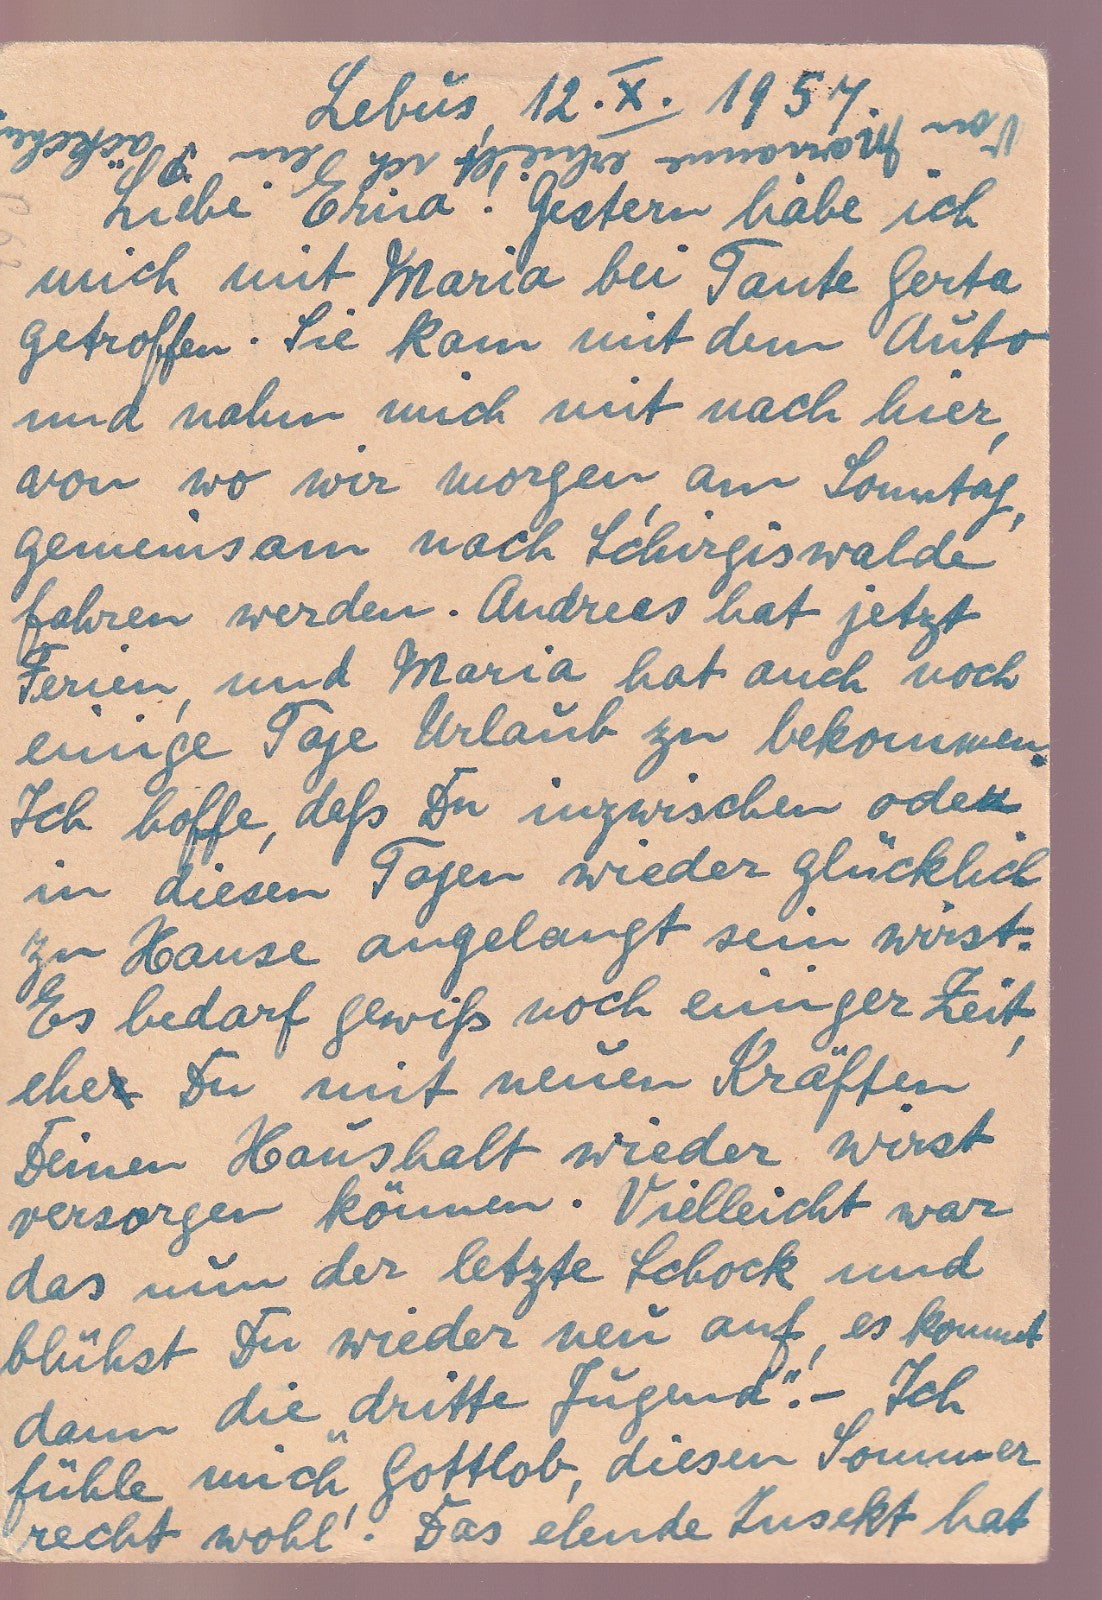 Lebus, 12. X. 1957.
Von Marianne erhielt ich ein Päckchen
Liebe Erna! Gestern habe ich
mich mit Maria bei Tante Gerta
getroffen. Sie kam mit dem Auto
und nahm mich mit nach hier,
von wo wir morgen, am Sonntag,
gemeinsam nach Schirgiswalde
fahren werden. Andreas hat jetzt
Ferien, und Maria hat auch noch
einige Tage Urlaub zu bekommen.
Ich hoffe, daß Du inzwischen oder
in diesen Tagen wieder glücklich
zu Hause angelangt sein wirst.
Es bedarf gewiß noch einiger Zeit,
ehe Du mit neuen Kräften
Deinen Haushalt wieder wirst
versorgen können. Vielleicht war
das nun der letzte Schock und
blühst Du wieder neu auf, es kommt
dann die „dritte Jugend“! – Ich
fühle mich, Gottlob, diesen Sommer
recht wohl. Das elende Insekt hat